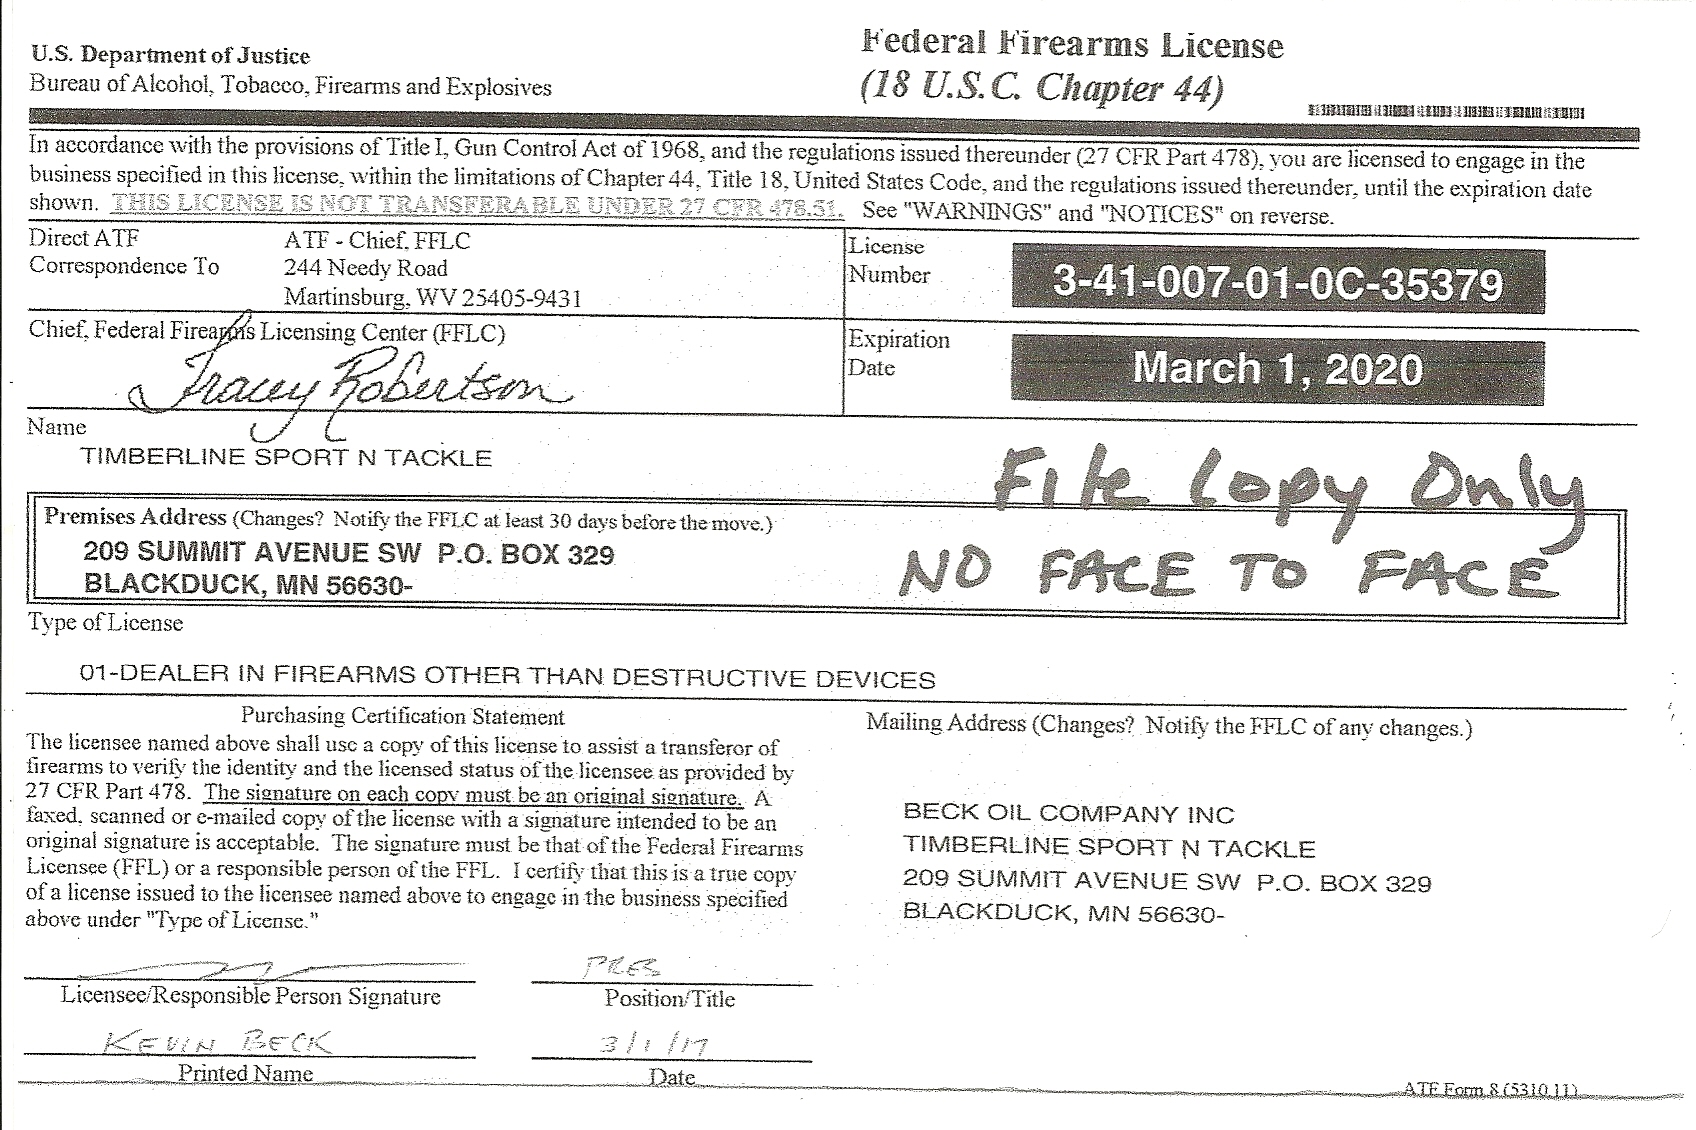 U.S. Department of Justice
Bureau of Alcohol, Tobacco, Firearms and Explosives
Federal Firearms License
(18 U.S.C. Chapter 44)
In accordance with the provisions of Title I, Gun Control Act of 1968, and the regulations issued thereunder (27 CFR Part 478), you are licensed to engage in the
business specified in this license, within the limitations of Chapter 44, Title 18, United States Code, and the regulations issued thereunder, until the expiration date
shown. THIS LICENSE IS NOT TRANSFERABLE UNDER 27 CFR 478.51. See "WARNINGS" and "NOTICES" on reverse.
Direct ATF
Correspondence To
ATF - Chief, FFLC
244 Needy Road
Martinsburg, WV 25405-9431
License
Number
3-41-007-01-0C-35379
Chief, Federal Firearms Licensing Center (FFLC)
Tracey Robertson
Expiration
Date
March 1, 2020
Name
TIMBERLINE SPORT N TACKLE
File Copy Only
Premises Address (Changes? Notify the FFLC at least 30 days before the move.)
209 SUMMIT AVENUE SW P.O. BOX 329
BLACKDUCK, MN 56630-
NO FACE TO FACE
Type of License
01-DEALER IN FIREARMS OTHER THAN DESTRUCTIVE DEVICES
Purchasing Certification Statement
The licensee named above shall use a copy of this license to assist a transferor of
firearms to verify the identity and the licensed status of the licensee as provided by
27 CFR Part 478. The signature on each copy must be an original signature. A
faxed, scanned or e-mailed copy of the license with a signature intended to be an
original signature is acceptable. The signature must be that of the Federal Firearms
Licensee (FFL) or a responsible person of the FFL. I certify that this is a true copy
of a license issued to the licensee named above to engage in the business specified
above under "Type of License."
Mailing Address (Changes? Notify the FFLC of any changes.)
BECK OIL COMPANY INC
TIMBERLINE SPORT N TACKLE
209 SUMMIT AVENUE SW P.O. BOX 329
BLACKDUCK, MN 56630-
PRES
Licensee/Responsible Person Signature
Position/Title
KEVIN BECK
3/1/17
Printed Name
Date
ATF Form 8 (5310.11)